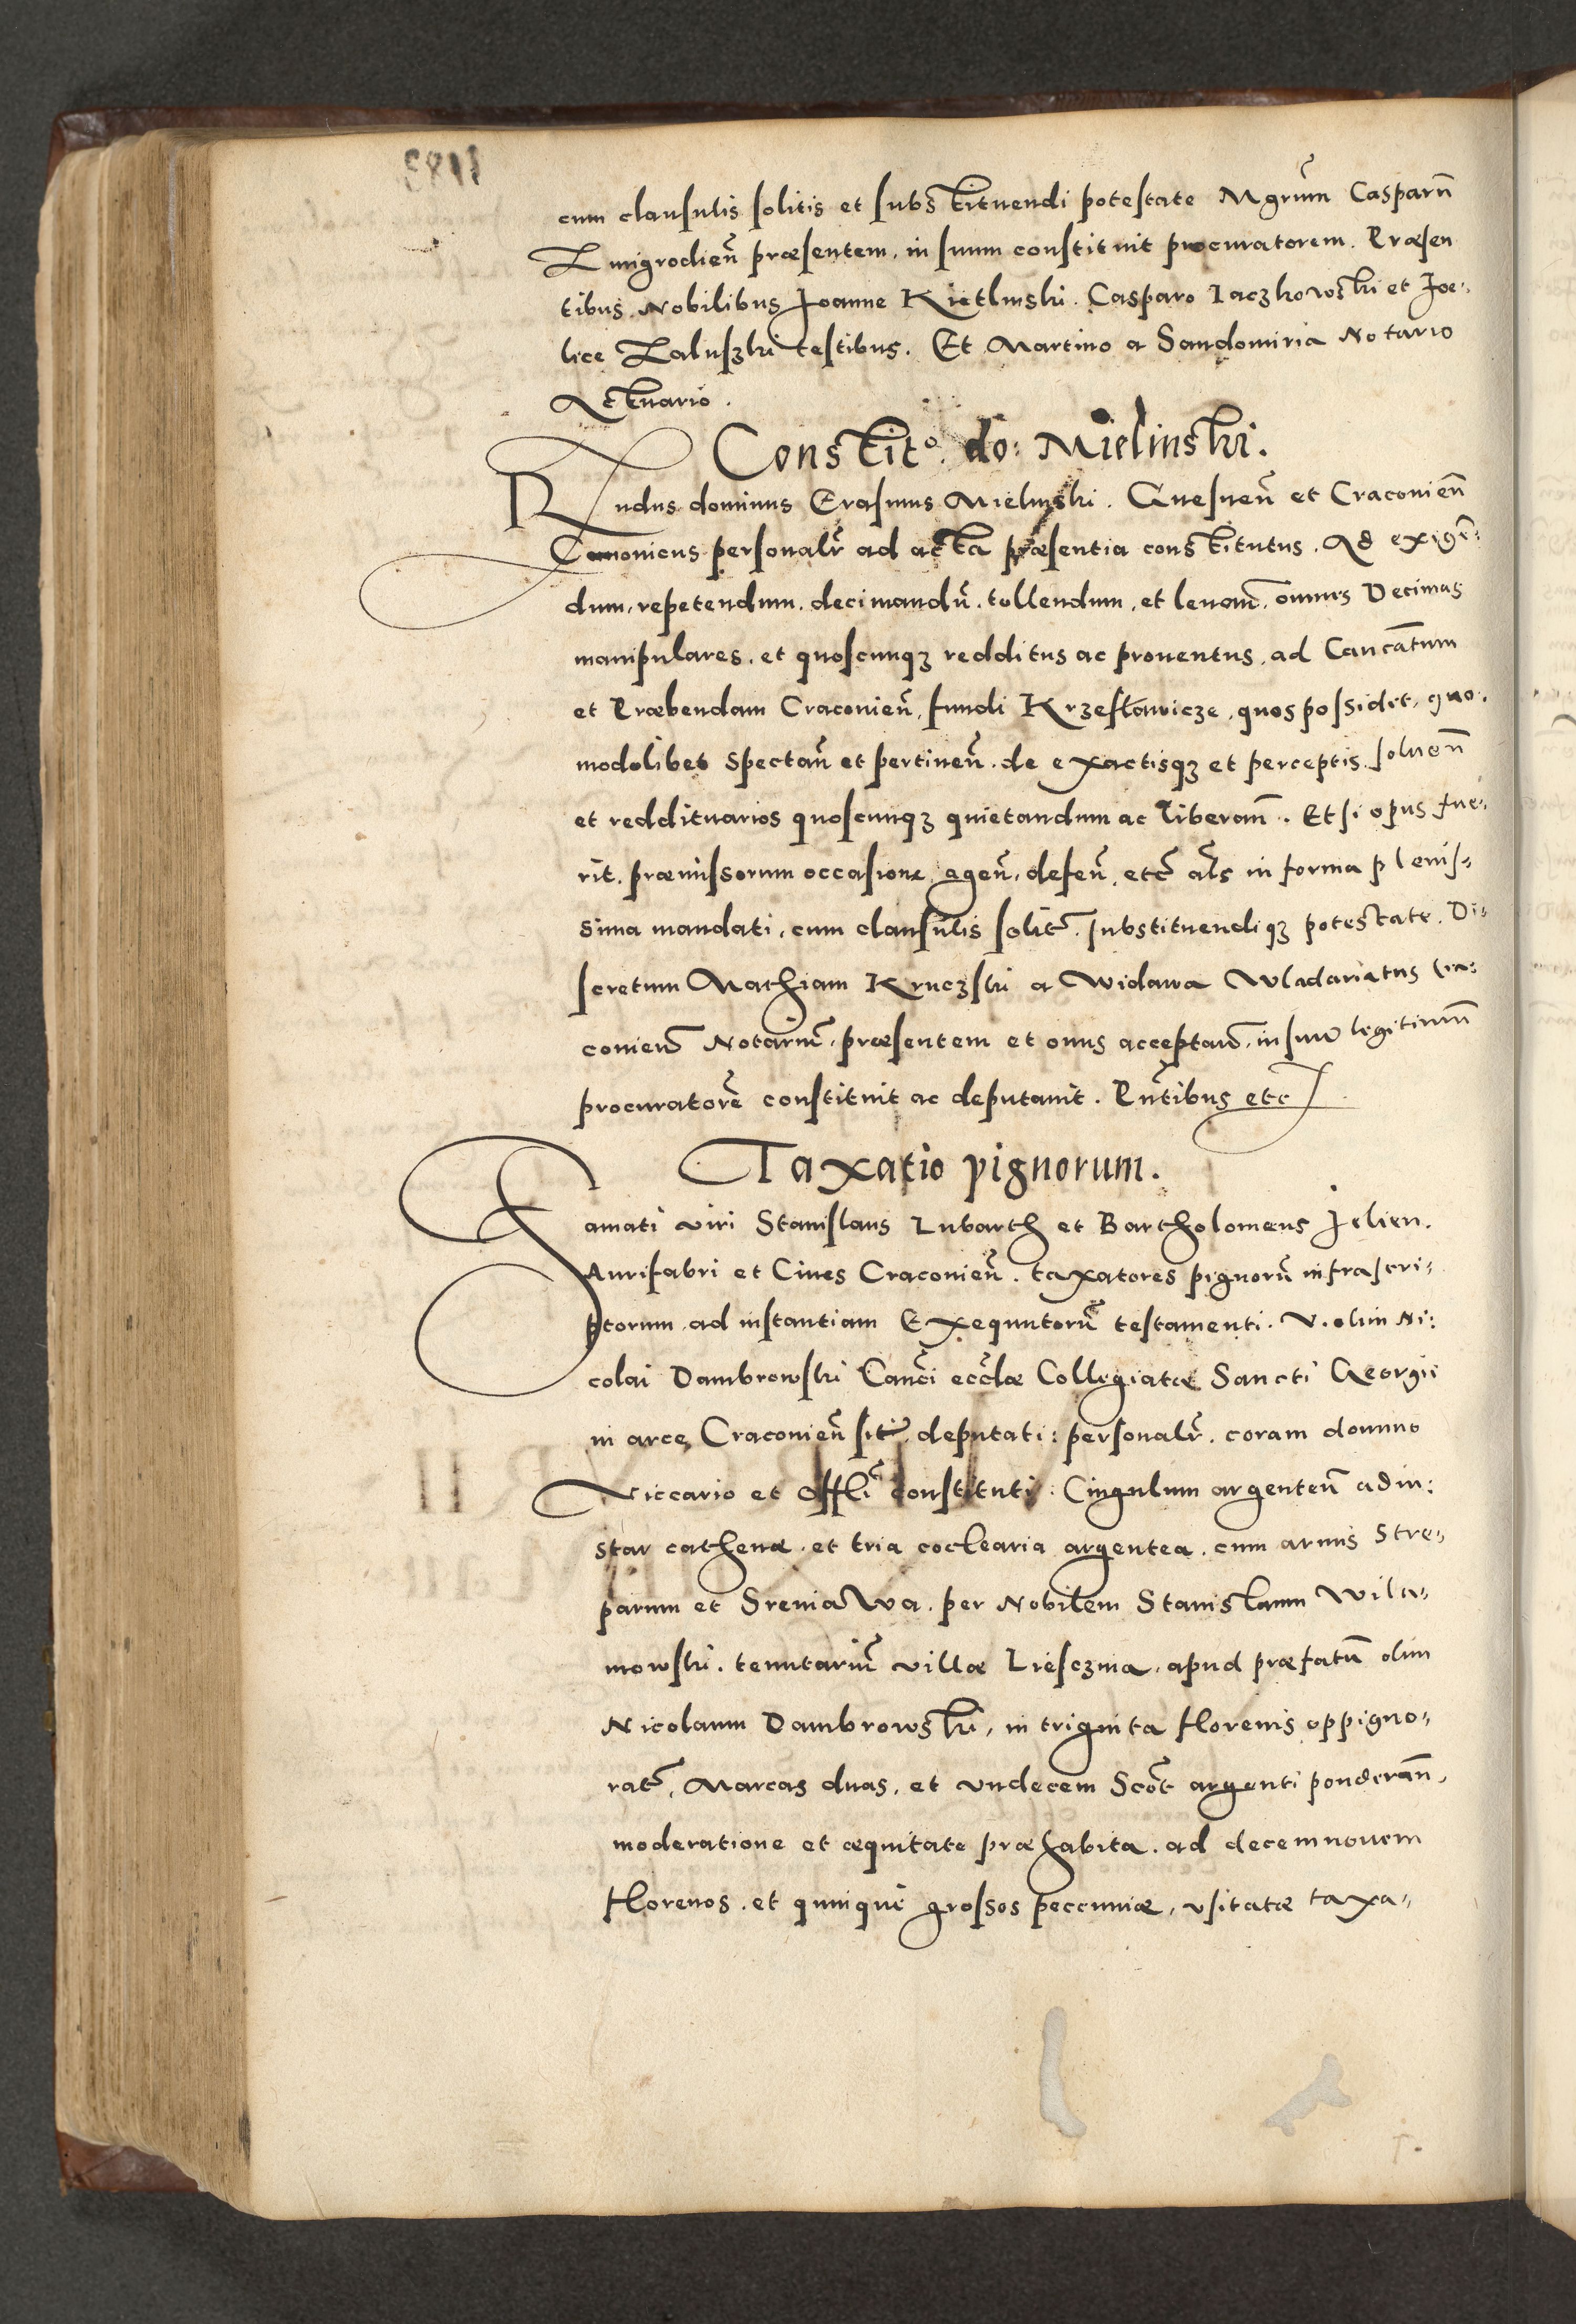 cum clausulis solitis et substituendi potestate Mgrum̃ Casparũ
Zmigrodieñ præsentem, in suum constituit procuratorem. Præsen
tibus. Nobilibus Joanne Kietlinski. Casparo Iaczkowski et Foe-
lice Zaluszki testibus. Et Martino a Sandomiria Notario
Actuario.
Constito. do: Mielinski.
Rndus dominus Erasmus Mielinski. Gnesneñ et Cracovieñ
Canonicus personalr̃ ad acta præsentia constitutus. Ad exigẽ-
dum, repetendum. decimandũ. tollendum, et levanđ. omnes Decimas
manipulares. et quoscunqꝫ redditus ac proventus, ad Canc̃atum
et Præbendam Cracovieñ, fundi Krzeslawicze, quos possidet, quo-
modolibet spectañ et pertineñ. de exactisqꝫ et perceptis. solveñ
et reddituarios quoscunqꝫ quietandum ac liberanđ. Et si opus fue-
rit. præmissorum occasione, ageñ, defeñ. etc̃ als̃ in forma plenis-
sima mandati, cum clausulis solit̃. substituendiqꝫ potestate. Di-
scretum Mathiam Kruczski a Widawa Wladariatus Cra-
covieñ Notariũ, præsentem et onus acceptanđ, in suũ legitimũ
procuratorẽ constituit ac deputavit. Pñtibus etc
Taxatio pignorum.
Famati viri Stanislaus Lubarth et Bartholomeus Jelien.
Aurifabri et Cives Cracovieñ. taxatores pignorũ infrascri-
ptorum, ad instantiam Exequutorũ testamenti. V. olim Ni:
colai Dambrowski Canc̃i eccl̃æ Collegiatæ Sancti Georgii
in arce, Cracovieñ sit̃. deputati: personalr̃. coram domino
Viccario et Offl̃i constituti. Cingulum argenteũ ad in:
star cathenæ. et tria coclearia argentea. cum armis Stre-
parum et Sreniawa. per Nobilem Stanislaum Wila-
mowski. tenutariũ villæ Liesczina, apud præfatũ olim
Nicolaum Dambrowski, in triginta florenis oppigno-
rat̃, Marcas duas, et undecem Scot̃ argenti ponderañ,
moderatione et æquitate præhabita. ad decemnovem
florenos. et quinque grossos peccuniæ, usitatæ taxa-